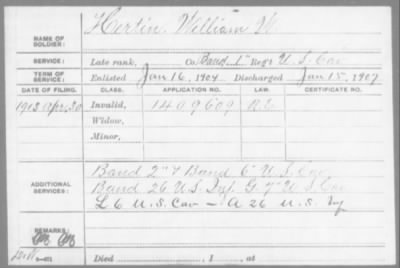 NAME OF SOLDIER: Hortin, William W.
SERVICE: Late rank, Co. Band 1" Reg't U.S. Cav
TERM OF SERVICE: Enlisted Jan 16, 1904. Discharged Jan 15, 1907
DATE OF FILING. CLASS. APPLICATION NO. LAW. CERTIFICATE NO.
1913 Apr. 30 Invalid, 1409609
Widow,
Minor,
ADDITIONAL SERVICES:
Band 2" & Band 6" U.S. Cav
Band 26 U.S. Inf. G 7" U.S. Cav
L 6 U.S. Cav – A 26 U.S. Inf
REMARKS:
Died , 1 , at